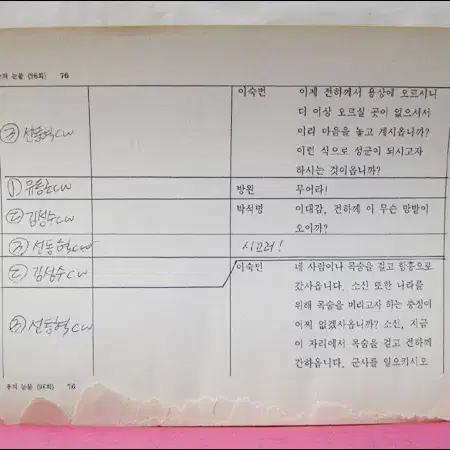 의 눈물 (96회) 76
이숙번 이제 전하께서 용상에 오르시니
더 이상 오르실 곳이 없으시서
이리 마음을 놓고 계시옵니까?
③ 선동혁 CW 이런 식으로 성군이 되시고자
하시는 것이옵니까?
① 유동근 CW 방원 무어라!
② 김성수 CW 박석명 이대감, 전하께 이 무슨 망발이
오이까?
③ 선동혁 CW 시끄러!
② 김성수 CW 이숙번 네 사람이나 목숨을 걸고 함흥으로
갔사옵니다. 소신 또한 나라를
위해 목숨을 버리고자 하는 충정이
③ 선동혁 CW 어찌 없겠사옵니까? 소신, 지금
이 자리에서 목숨을 걸고 전하께
간하옵니다. 군사를 일으키시오
용의 눈물 (96회) 76